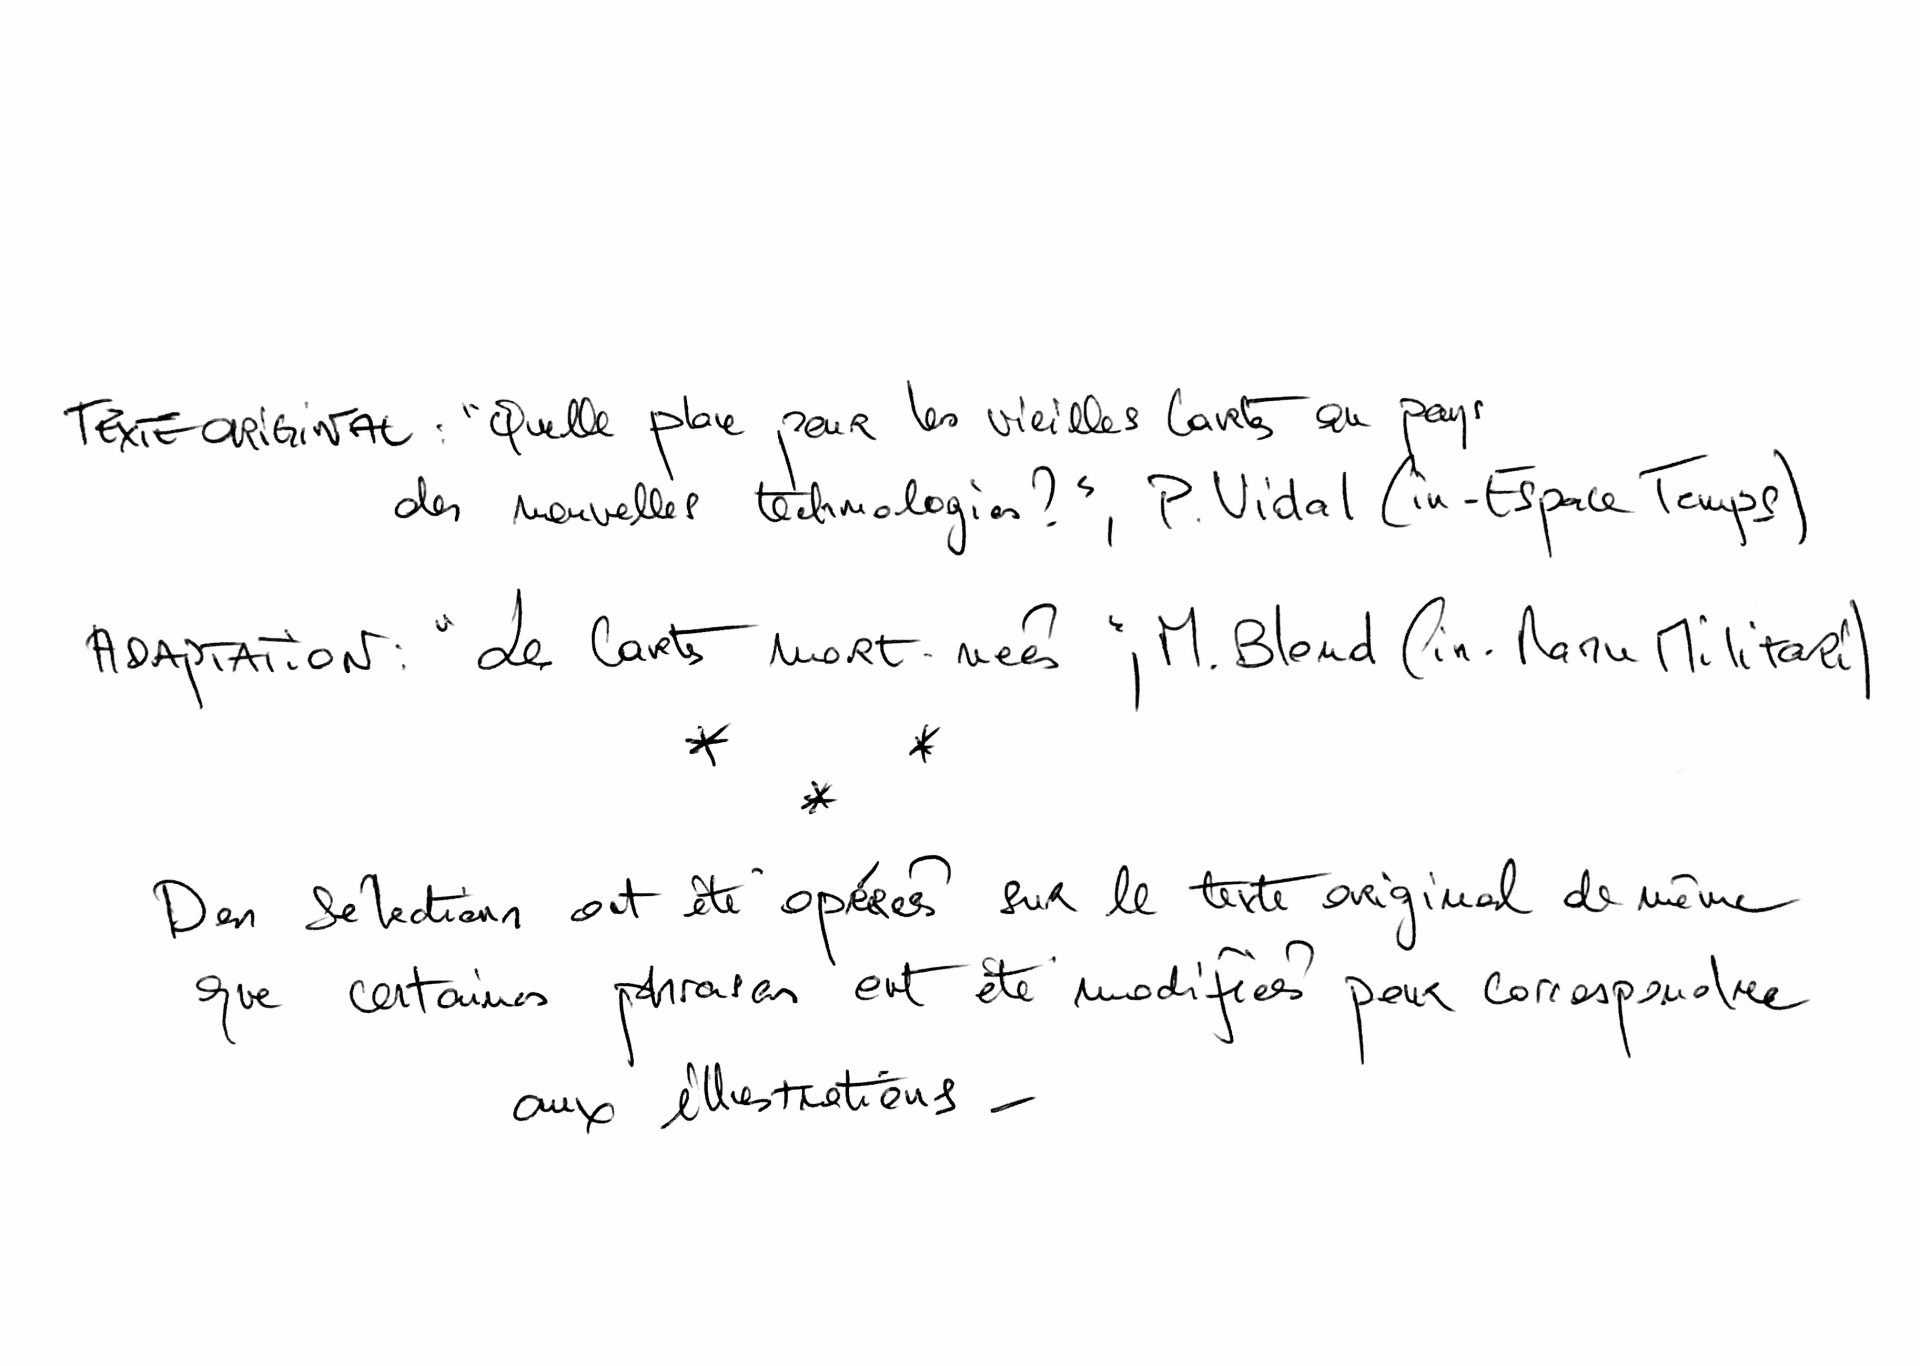 TEXTE ORIGINAL : "Quelle place pour les vieilles cartes au pays
des nouvelles technologies ?", P. Vidal (in-Espace Temps)
ADAPTATION : "Les Cartes mort-nées", M. Blond (in. Manu Militari)
* *
*
Des sélections ont été opérées sur le texte original de même
que certaines phrases ont été modifiées pour correspondre
aux illustrations -